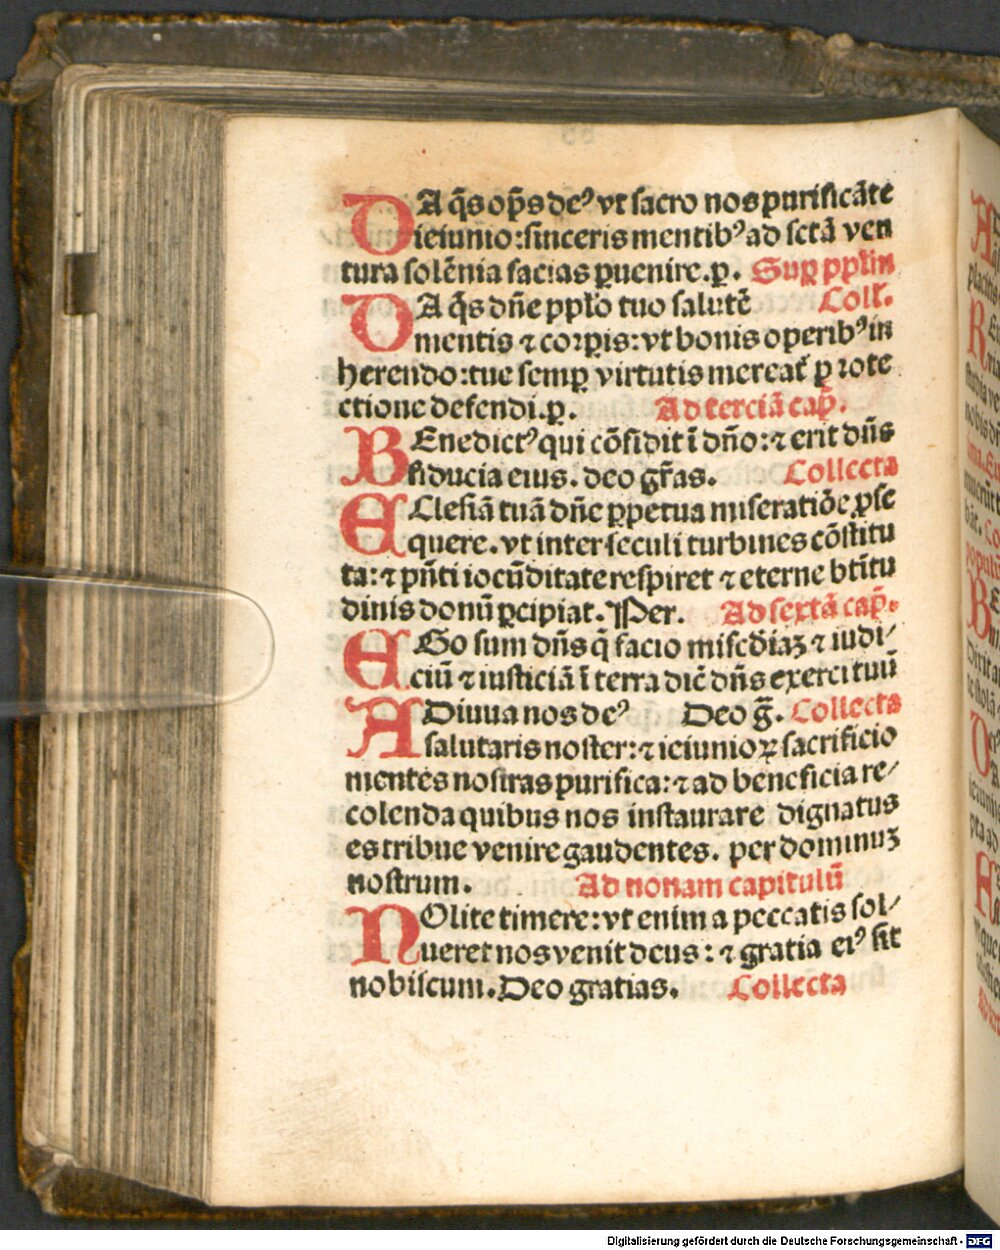 DA q̄s op̄s deꝰ vt sacro nos purificāte
ieiunio:sinceris mentibꝰ ad sctā ven
tura solēnia facias ꝑuenire.ꝑ. Suꝑ pplīn
DA q̄s dn̄e pplo tuo salutē Coll'.
mentis ⁊ corꝑis:vt bonis operibꝰ in
herendo:tue semꝑ virtutis mereat̃ ꝓ rote
ctione defendi.ꝑ. Ad terciā cap̄.
BEnedictꝰ qui cōfidit ī dn̄o:⁊ erit dn̄s
fiducia eius. deo gr̄as. Collecta
ECclesiā tuā dn̄e ꝑpetua miseratiōe ꝓse
quere. vt inter seculi turbines cōstitu
ta:⁊ pn̄ti iocūditate respiret ⁊ eterne btītu
dinis donū ꝑcipiat. Per. Ad sextā cap̄.
EGo sum dn̄s q̄ facio misc̄diaꝫ ⁊ iudi⸗
ciū ⁊ iusticiā ī terra dic̄ dn̄s exercituū
ADiuua nos deꝰ Deo g̃. Collecta
salutaris noster:⁊ ieiunioꝝ sacrificio
mentes nostras purifica:⁊ ad beneficia re⸗
colenda quibus nos instaurare dignatus
es tribue venire gaudentes. per dominuꝫ
nostrum. Ad nonam capitulū
NOlite timere:vt enim a peccatis sol⸗
ueret nos venit deus:⁊ gratia eiꝰ sit
nobiscum.Deo gratias. Collecta
Digitalisierung gefördert durch die Deutsche Forschungsgemeinschaft - DFG